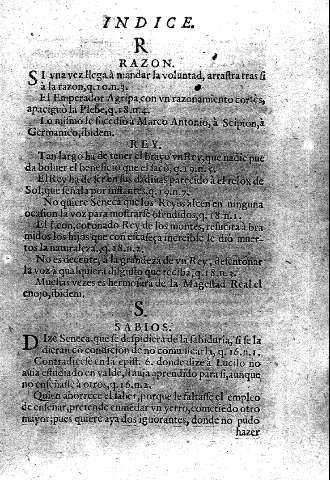 INDICE.
R
RAZON.
SI vna vez llega à mandar la voluntad, arrastra tras si
à la razon, q.10.n.3.
El Emperador Agripa con vn razonamiento cortès,
apaciguò la Plebe, q.18.n.4.
Lo mismo le sucediò à Marco Antonio, à Scipion, à
Germanico, ibidem.
REY.
Tan largo ha de tener el brazo vn Rey, que nadie pue
da boluer el beneficio que el sacò, q.19.n.5.
El Rey ha de ser en sus dadiuas parecido à el relox de
Sol, que señala por instantes, q.19.n.7.
No quiere Seneca que los Reyes alcen en ninguna
ocasion la voz para mostrarse ofendidos, q.18.n.1.
El Leon, coronado Rey de los montes, resucita à bra
midos los hijos que con escaseça increible le diò muer
tos la naturaleza, q.18.n.2.
No es decente, à la grandeza de vn Rey, desentonar
la voz à qualquiera disgusto que reciba, q.18.n.3.
Muchas vezes es hermosura de la Magestad Real el
enojo, ibidem.
S.
SABIOS.
DIze Seneca, que se despidiera de la sabiduria, si se la
dieran cõ condicion de no comunicarla, q.16.n.1.
Contradicese en la epist. 6. donde dize à Lucilo no
auia estudiado en valde, si auia aprendido para si, aunque
no enseñasse à otros, q.16.n.2.
Quien aborrece el saber, porque le faltasse el empleo
de enseñar, pretende enmedar vn yerro, cometiẽdo otro
mayor; pues quiere aya dos ignorantes, donde no pudo
hazer